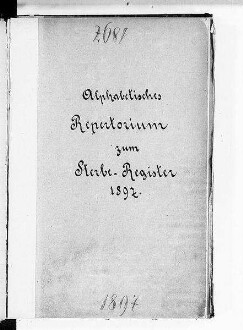 1897
Alphabetisches
Repertorium
zum
Sterbe-Register
1897.
1897